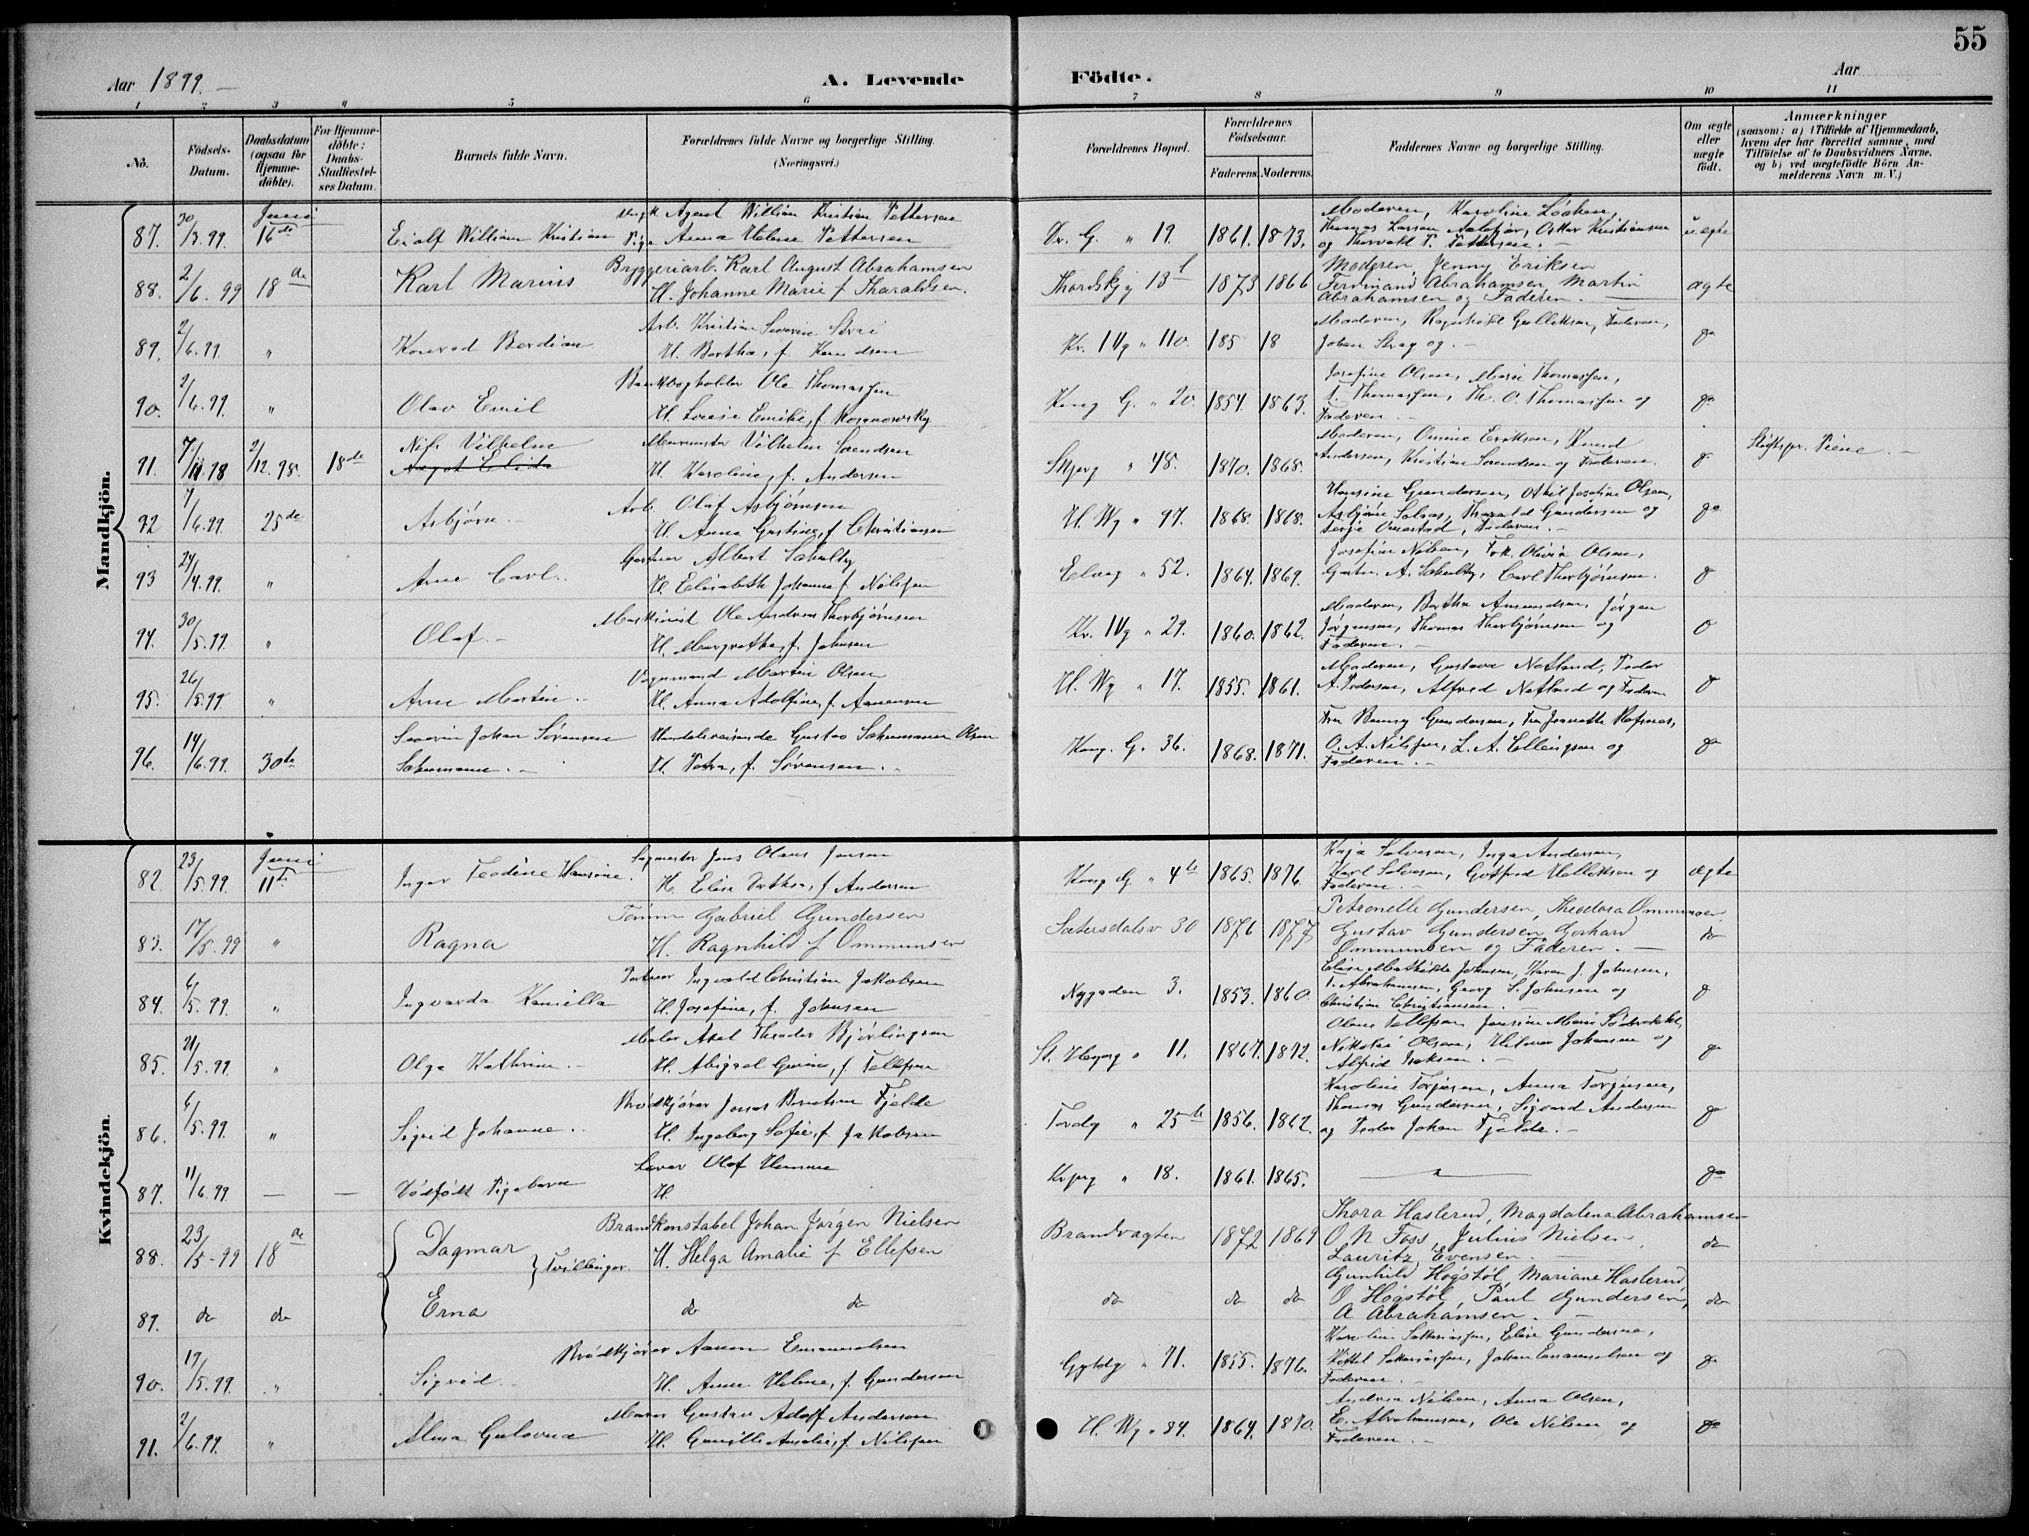 55
Aar 1899. A. Levende Födte. Aar
1 2 3 4 5 6 7 8 9 10 11
No.
Födsels-Datum.
Daabsdatum (ogsaa for Hjemme-döbte).
For Hjemme-döbte: Daabs-Stadfæstel-ses Datum.
Barnets fulde Navn.
Forældrenes fulde Navne og borgerlige Stilling (Næringsvei.)
Forældrenes Bopæl.
Forældrenes Födselsaar.
Faderens. Moderens.
Faddernes Navne og borgerlige Stilling.
Om ægte eller uægte födt.
Anmærkninger
(saasom: a) i Tilfælde af Hjemmedaab, hvem der har forrettet samme, med Tilföielse af to Daabsvidners Navne, og b) ved uægtefödte Börn An-melderens Navn m. V.)
Mandkjön.
87. 30/3.99. Juni 16de William Kristian
Agent William Kristian Pettersen
Pige Anna Helene Pettersen
Dr. G. " 19. 1861. 1873.
Moderen, Karoline Løken,
Thomas Larsen, Oskar Kristiansen
og Thorvald P. Pettersen. uægte
88. 2/6.99 18de Karl Marius
Bryggeriarb. Karl August Abrahamsen
H. Johanne Marie f Tharaldsen.
1873 1866
Moderen, Jenny Eriksen
Ferdinand Abrahamsen, Martin
Abrahamsen og Faderen. ægte
89. 2/6.99. " Konrad Berdian
Arb. Kristian Severin
H. Bertha, f. Knudsen
Kr. IVg " 110. 185 18
Moderen, Ragnhild Gulliksen, Faderen,
Johan Stray og. do
90. 2/6.99. " Olav Emil
Bankbogholder Ole Thomassen
H. Lovise Emilie, f.
Kong. G. " 20. 1854. 1863.
Josefine Olsen, Marie Thomassen,
Thomassen, Th. O. Thomassen og
Faderen. do
91. 7/11.98 2/12.98. 18de Nils Vilhelm
Murmester Vilhelm Svendsen
H. Karoline, f. Andersen
" 48. 1870. 1868.
Moderen, Omine Eriksen, Knud
Andersen, Kristian Svendsen og Faderen. do
92 7/6.99. 25de Asbjørn.
Arb. Olaf Asbjørnsen
H. Anna Gustine, f. Christiansen
H. Wg " 97. 1868. 1868.
Hansine Gundersen, Josefine Olsen,
Asbjørn Harald Gundersen og
Terje Omestad, Faderen. do
93 24/4.99. " Arne Carl.
Gartner Albert Schulty
H. Elisabeth Johanne f. Nilssen
Elveg " 52. 1864. 1869.
Josefine Nilsen, Frk. Olivia Olsen,
Gartn. A. Schulty, Carl Thorbjørnsen. do
94. 30/5.99. " Olaf.
Maskinist Ole Andreas Thorbjørnsen
H. Margrethe, f. Johnsen
Kr. IVg " 29. 1860. 1862.
Moderen, Bertha Amundsen, Jørgen
Jørgensen, Thomas Thorbjørnsen og
Faderen.
95. 26/5.99 " Arne Martin.
Vognmand Martin Olsen
H. Anna Adolfine, f. Aanensen
H. Wg " 17. 1855. 1861.
Moderen, Gustava Netland, Peder
A. Pedersen, Alfred Netland og Faderen
96. 14/6.99. 30te Severin Johan Sørensen
Schumann.
Handelsreisende Gustav Schumann Olsen
H. Petra, f. Sørensen.
Kong. G. 36. 1868. 1871.
Fru Benny Gundersen, Fru Jeanette Refsnes,
O. A. Nilssen, L. A. Ellingsen og
Faderen. do
Kvindekjön.
82. 23/5.99. Juni 11te Inger Teodine Hansine.
Sagmester Jens Olaus Jensen
H. Elise f. Andersen
Kong. G. " 4b 1865. 1876.
Kaja Solvesen, Inga Andersen,
Karl Solvesen, Gotfred og
Faderen. ægte
83. 17/5.99 " Ragna
Tømm Gabriel Gundersen
H. Ragnhild f Ommunsen
Sætersdalsv 30 1876 1877
Petronelle Gundersen, Theodora Ommunsen
Gustav Gundersen Gerhard
Ommunsen og Faderen. do
84. 6/5.99. " Ingvarda Kamilla
Ingvald Christian Jakobsen
H. Josefine, f. Johnsen
Nygaden 3. 1853. 1860.
Elise Mathilde Johnsen, Karen J. Johnsen,
T. Abrahamsen, Georg S. Johnsen og
Christian Christiansen. do
85. 21/5.99. " Olga Kathrine.
Maler Axel Theodor Bjørlingsen
H. Abigael Gurine, f. Tellefsen
St. Hbgerg " 11. 1867. 1872.
Olene Tellefsen,
Nikolai Olsen, Hilmar Johansen og
Alfred Isaksen. do
86. 6/5.99. " Sigrid Johanne.
Brødkjører Jonas Berntsen Fjelde
H. Ingeborg Sofie, f. Jakobsen
Tordg " 25b 1856. 1862.
Karoline Torjusen, Anna Torjusen,
Thomas Gundersen, Sigvard Andersen
og Peder Johan Fjelde. do
87. 11/6.99. — — Dødfødt Pigebarn
Olaf
H.
" 18. 1861. 1865. do
88. 23/5-99 18de Dagmar Tvillinger.
Brandkonstabel Johan Jørgen Nielsen
H. Helga Amalie f Ellefsen
Brandvagten 1872 1869
Thora Haslerud, Magdalena Abrahamsen
O N Foss, Julius Nielsen
Lauritz Evensen. do
89. do do Erna do do
do do do
Gunhild Høgstøl, Mariane Haslerud
O Høgstøl, Paul Gundersen,
A Abrahamsen. do
90. 19/5.99. " Sigrid.
Brødkjører Aanen Emanuelsen
H. Anne Helene, f. Gundersen
Gyldg " 71. 1855. 1876.
Elise Gundersen,
Johan Emanuelsen og
Faderen. do
91. 2/6.99. " Alma
Gustav Adolf Andersen
H. Gunille Amalie, f. Nilssen
H. Wg " 84. 1864. 1870.
Andrea Nilsen, Anna Olsen,
E. Abrahamsen, Ole Nilsen og
Faderen. do